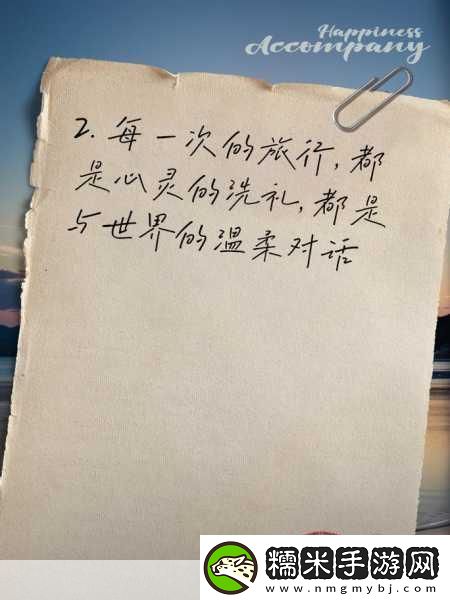 Happiness
Accompany
2. 每一次的旅行, 都
是心灵的洗礼, 都是
与世界的温柔对话
糯米手游网
www.nmgmybj.com